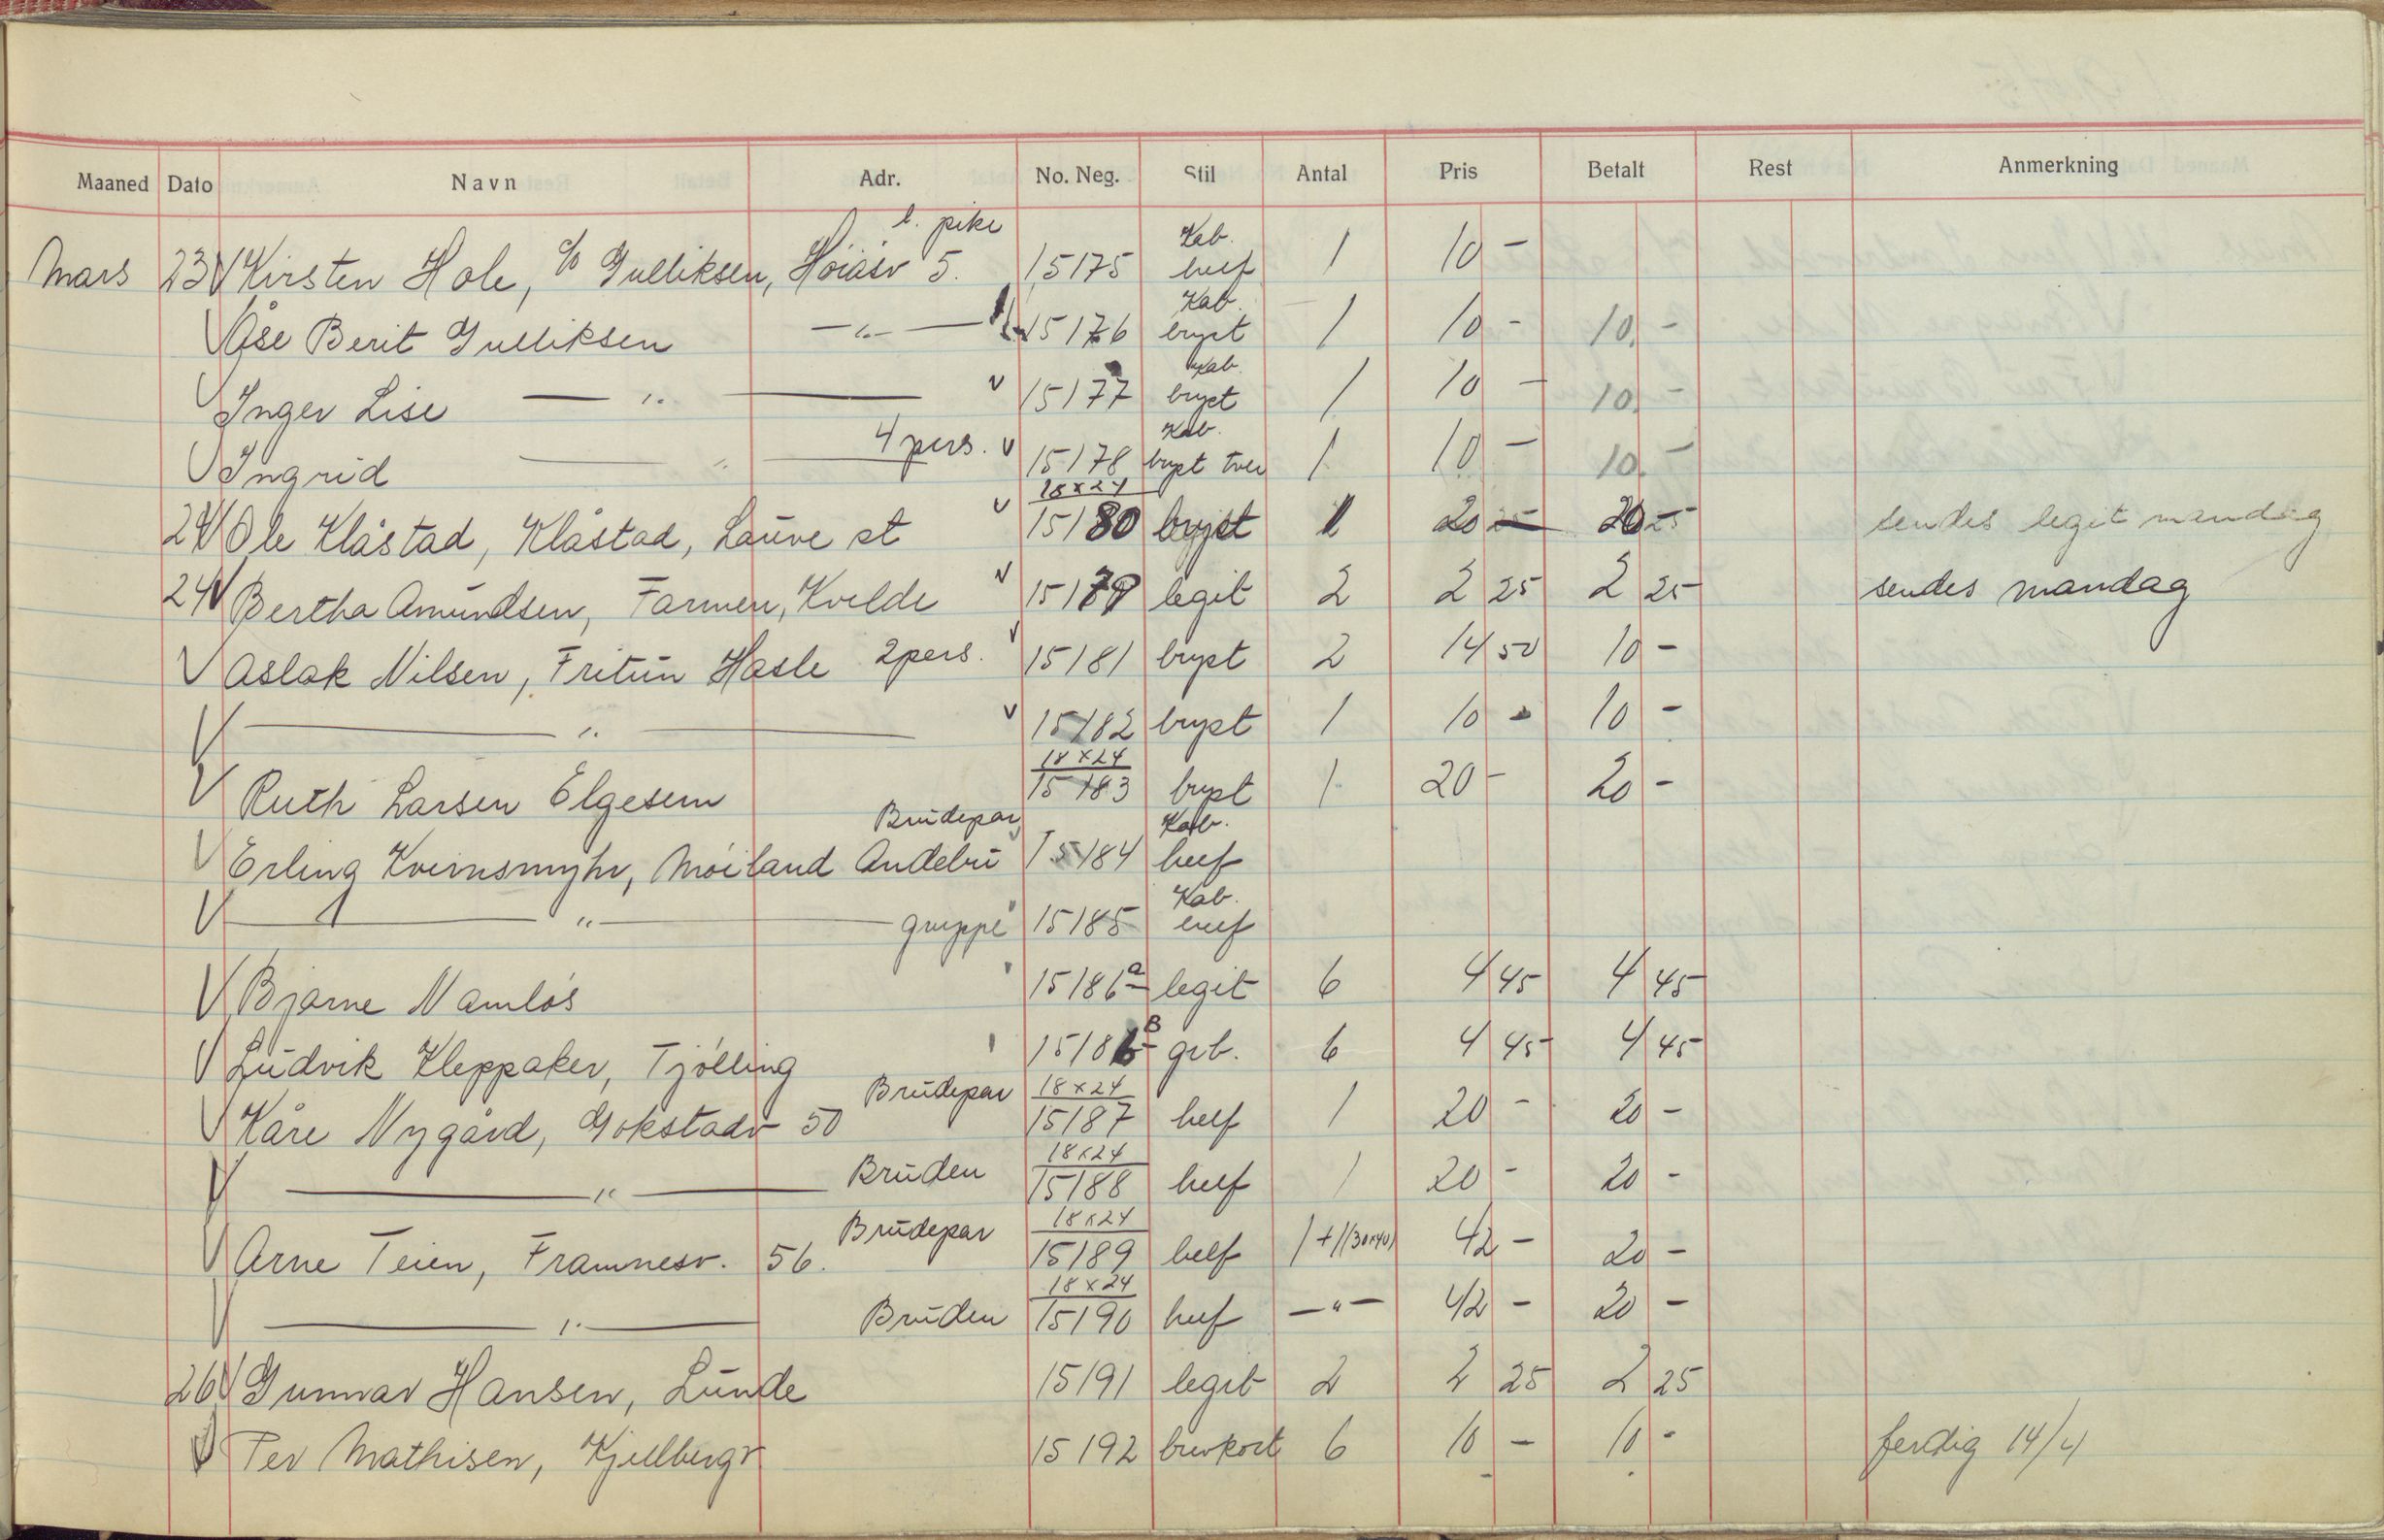 Maaned Dato Navn Adr. No. Neg. Stil Antal Pris Betalt Rest Anmerkning
l. pike Kab.
Mars 23 V Kirsten Hole, c/o Gulliksen, Høiåsv 5. 15175 helf 1 10 -
Kab.
V Åse Berit Gulliksen —"— 15176 bryst 1 10 - 10. -
Kab.
V Inger Lise —"— v 15177 bryst 1 10 - 10. -
4 pers. Kab.
V Ingrid —"— v 15178 bryst tver 1 10 - 10. -
18x24
24 V Ole Klåstad, Klåstad, Lauve st v 15180 bryst 1 20 20 25 sendes legit mandag
24 V Bertha Amundsen, Farmen, Kvelde v 15179 legit 2 2 25 2 25 sendes mandag
V Aslak Nilsen, Fritun Hasle 2 pers. v 15181 bryst 2 14 50 10 -
V —"— v 15182 bryst 1 10 - 10 -
18x24
V Ruth Larsen Elgesem 15183 bryst 1 20 - 20 -
Brudepar Kab.
V Erling Kvernsmyhr, Møiland Andebu 15184 helf
Kab.
V —"— gruppe 15185 helf
V Bjarne Namløs 15186a legit 6 4 45 4 45
V Ludvik Kleppaker, Tjølling 15186B grb. 6 4 45 4 45
Brudepar 18x24
V Kåre Nygård, Gokstadv 50 15187 helf 1 20 - 20 -
18x24
V —"— Bruden 15188 helf 1 20 - 20 -
Brudepar 18x24
V Arne Teien, Framnesv. 56. 15189 helf 1+1(30x40) 42 - 20 -
18x24
V —"— Bruden 15190 helf —"— 42 - 20 -
26 V Gunnar Hansen, Lunde 15191 legit 2 2 25 2 25
V Per Mathisen, Kjellbergv 15192 brevkort 6 10 - 10 - ferdig 14/4